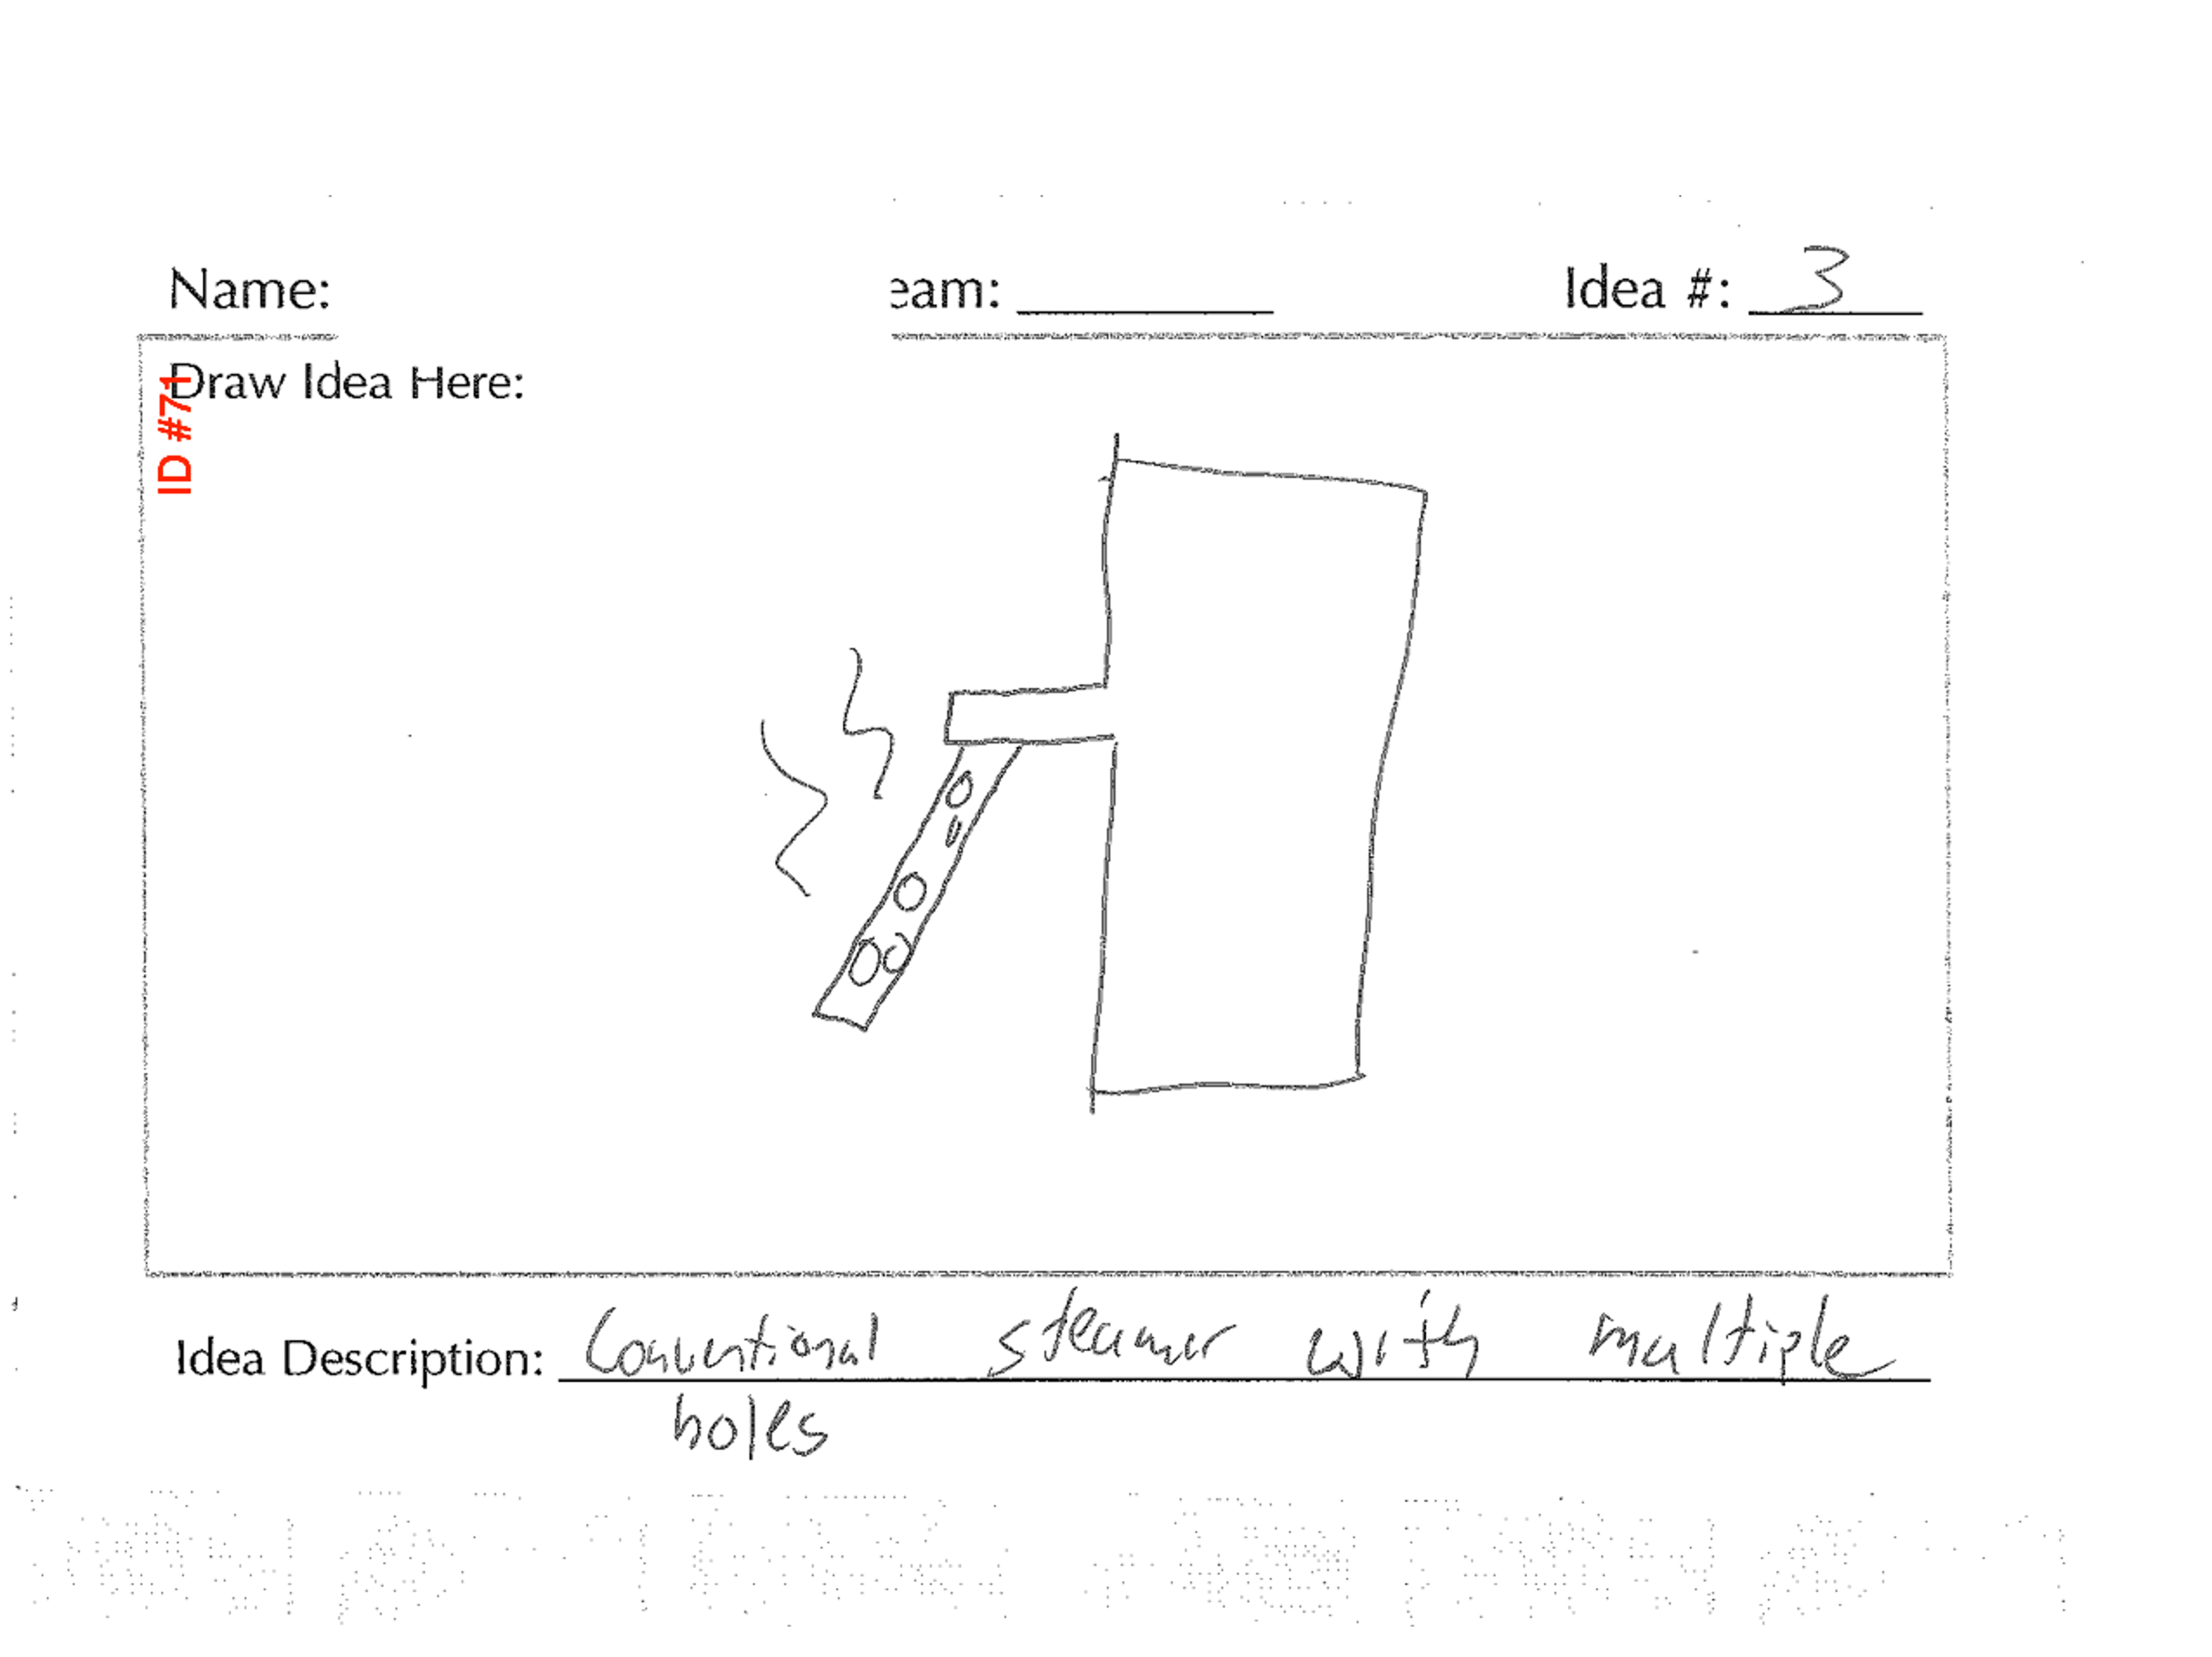 Name: eam: Idea #: 3
Draw Idea Here:
ID #71
Idea Description: Conventional steamer with multiple
holes